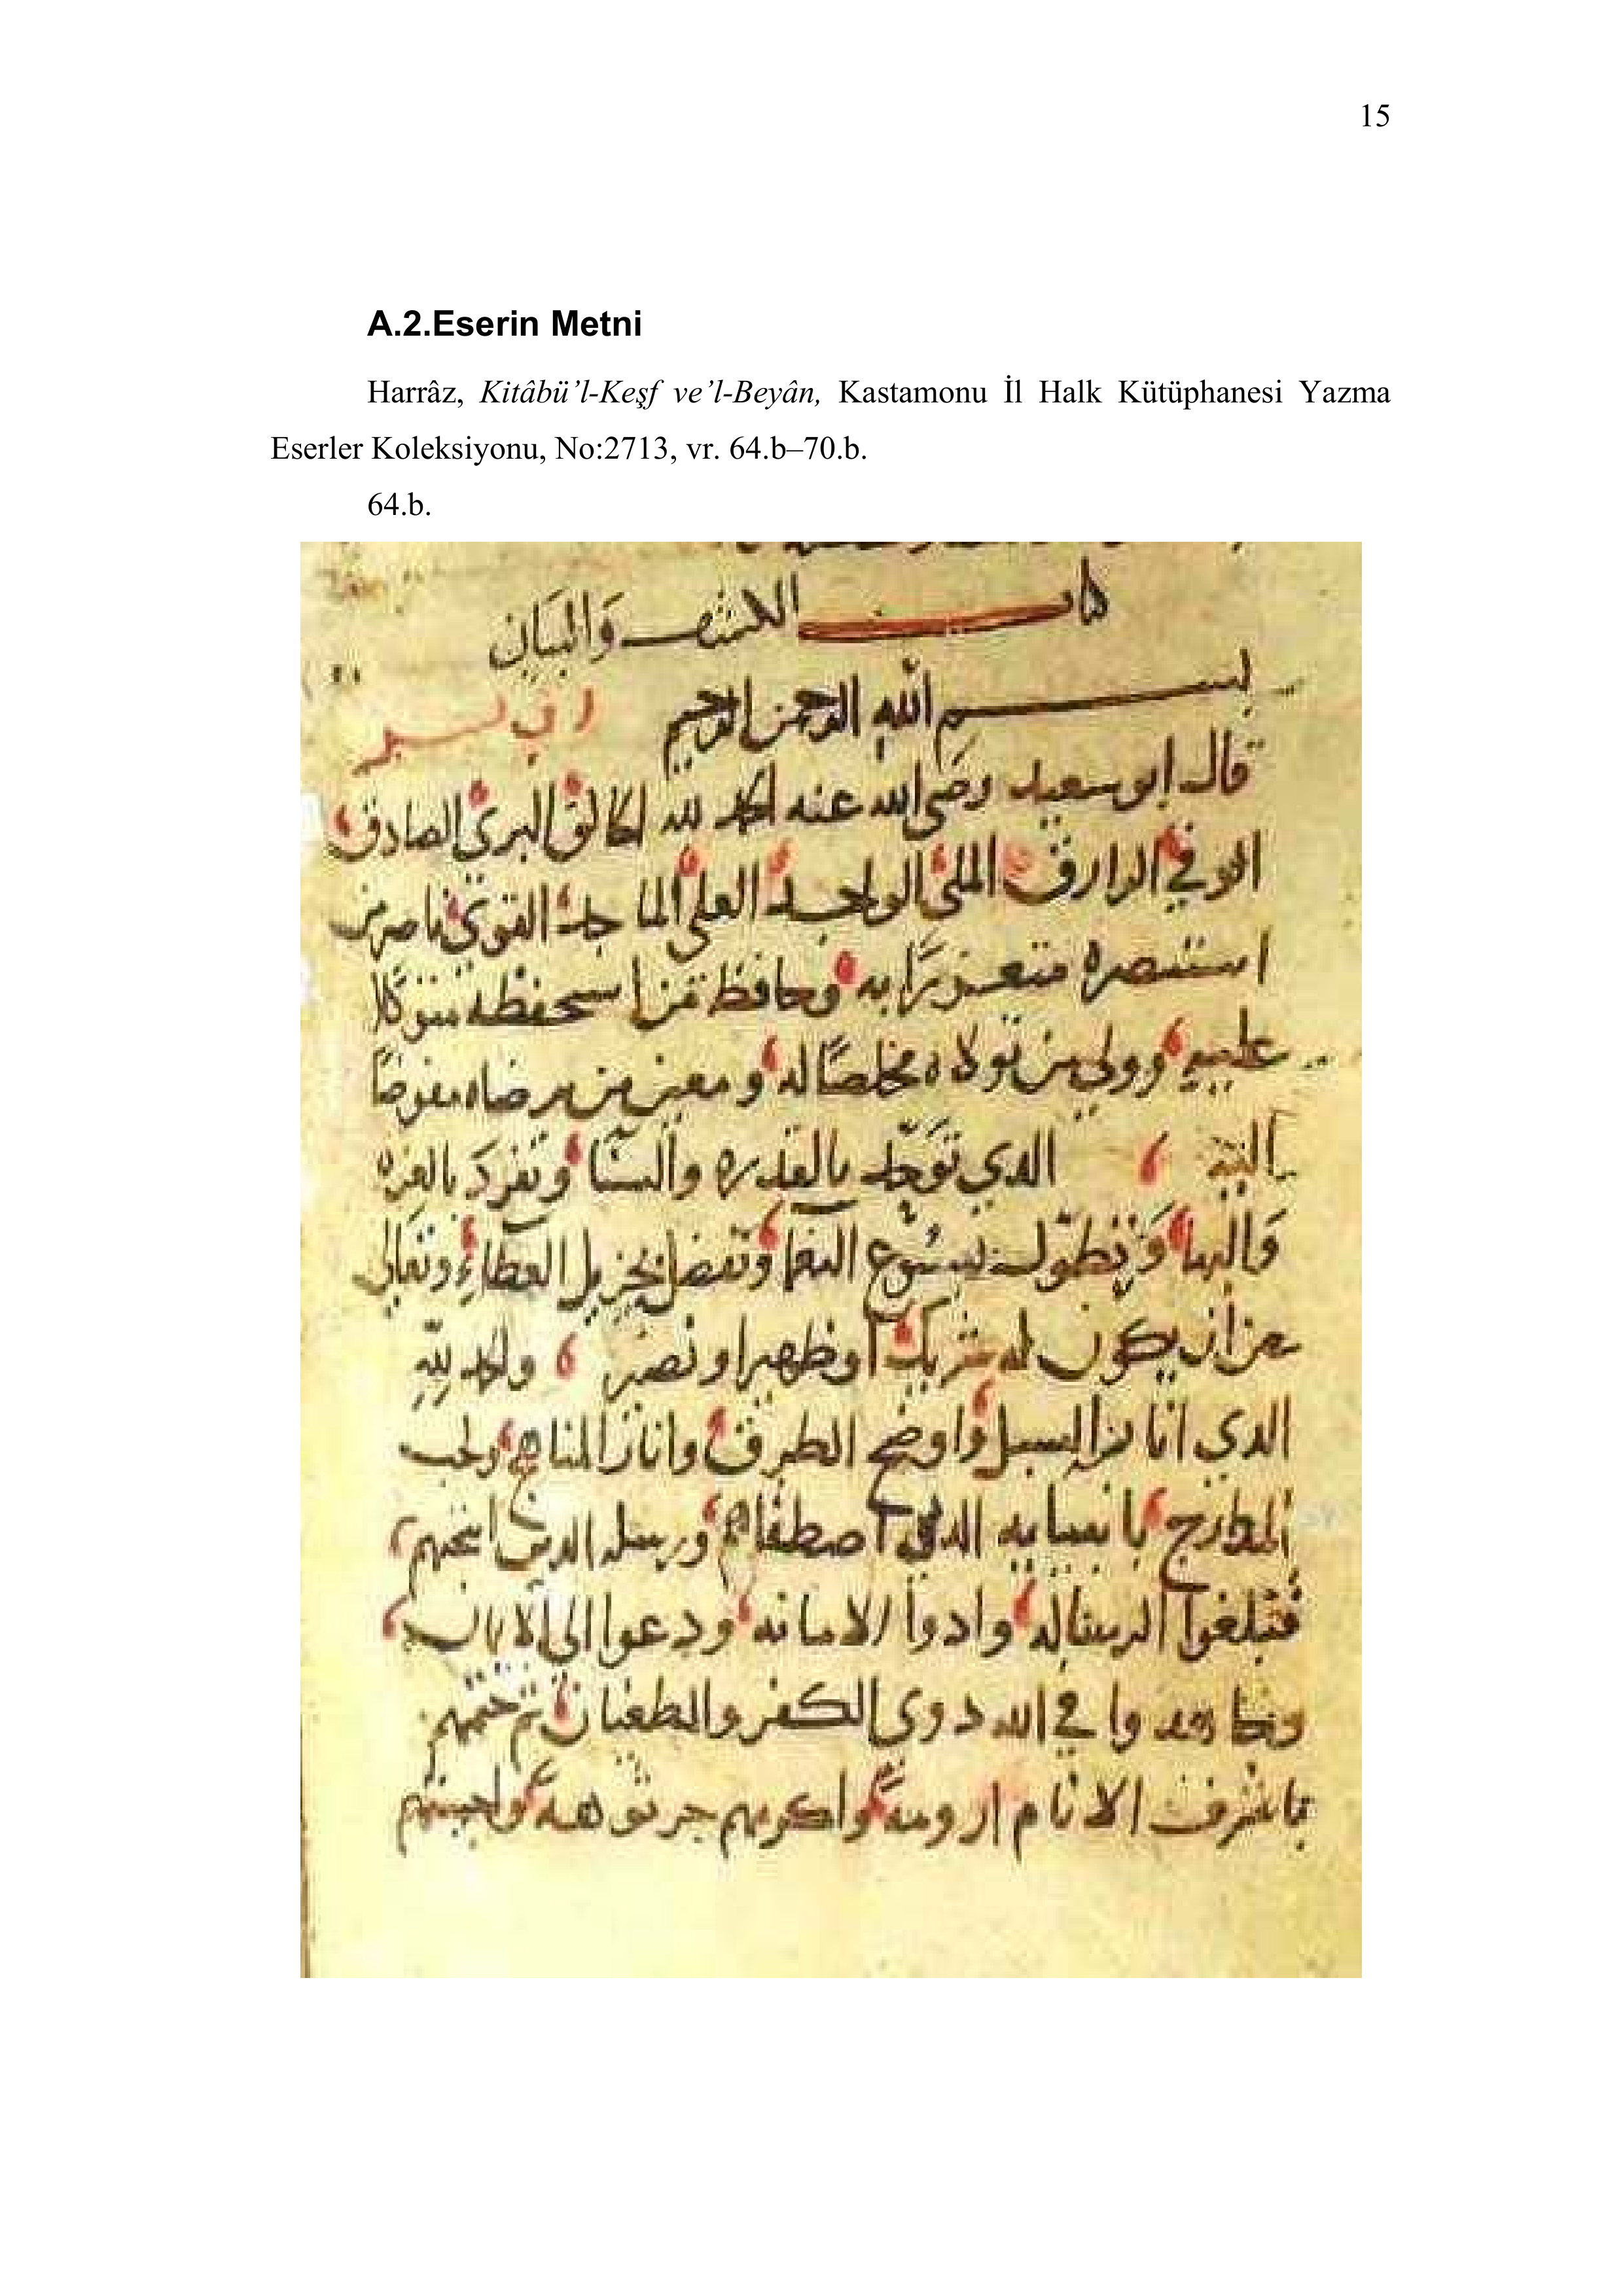 15
A.2.Eserin Metni
Harrâz, Kitâbü’l-Keşf ve’l-Beyân, Kastamonu İl Halk Kütüphanesi Yazma
Eserler Koleksiyonu, No:2713, vr. 64.b–70.b.
64.b.
كتاب الكشف والبيان
بسم الله الرحمن الرحيم رب يسر
قال ابو سعيد رضي الله عنه الحمد لله الخالق البري الصادق
الوفي الرازق الملي الواحد العلي الماجد القوي ناصر من
استنصره متعززا به وحافظ من استحفظه متوكلا
عليه وولي من تولاه مخلصا له ومعين من مفوضا
اليه الذي توحد بالقدره والسنا وتفرد بالعزه
والبها وتطول بسبوغ النعما وتفضل بجزيل العطاء وتعالى
عن ان يكون له شريك او ظهير او نصير والحمد لله
الذي انار السبل واوضح الطرق وانار المناهج
بانبيايه الذين اصطفاهم ورسله الذين انتجبهم
فبلغوا الرسالة وادوا الامانه ودعوا الى
وجاهدوا في الله ذوي الكفر والطغيان ثم ختمهم
باشرف الانام ارومة واكرمهم جرثومة